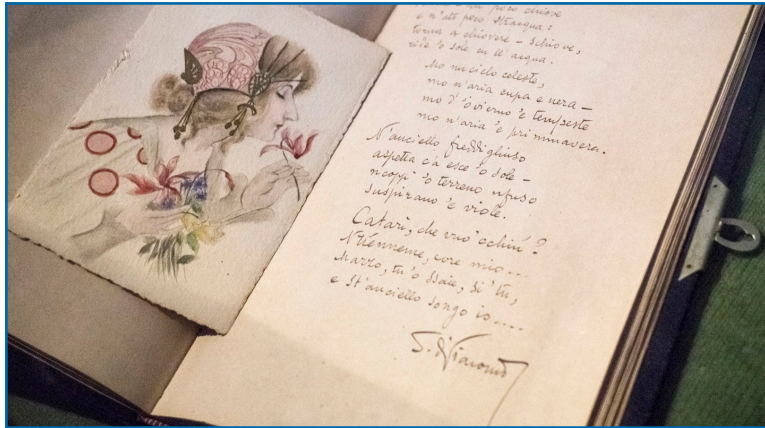 nu poco chiove
e n'atu poco stracqua:
torna a chiovere – schiove,
ride 'o sole cu ll'acqua.
Mo nu cielo celeste,
mo n'aria cupa e nera –
mo d' 'o vierno 'e tempeste
mo n'aria 'e primmavera.
N'auciello freddigliuso
aspetta c'à esce 'o sole –
ncopp' 'o terreno nfuso
suspirano 'e viole.
Catarì, che vuo' cchiù?
Ntienneme, core mio....
Marzo, tu 'o ssaie, si' tu,
e st'auciello songo io.....
S. di Giacomo